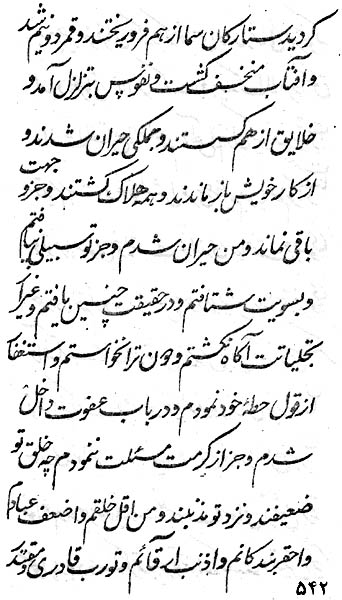 گردید ستارگان سما از هم فرو ریختند و قمر دو نیم شد
و آفتاب منخسف گشت و نفوس بتزلزل آمد و
خلایق از هم گسستند و جملگی حیران شدند و
از کار خویش باز ماندند و همه هلاک گشتند و جز وجهت
باقی نماند و من حیران شدم و جز تو سبیلی نیافتم
و بسویت شتافتم و در حقیقت چنین یافتم و غیر از
تجلیاتت آگاه نگشتم و چون ترا نخواستم و استغفار
از قول خطۀ خود نمودم و در باب عفوت داخل
شدم و جز از کرمت مسئلت ننمودم چه خلق تو
ضعیفند و نزد تو مذنبند و من اقل خلقم و اضعف عبادم
و احقر بندگانم و اذنب ارقائم و تو رب قادری و مقتدر
۵۴۲